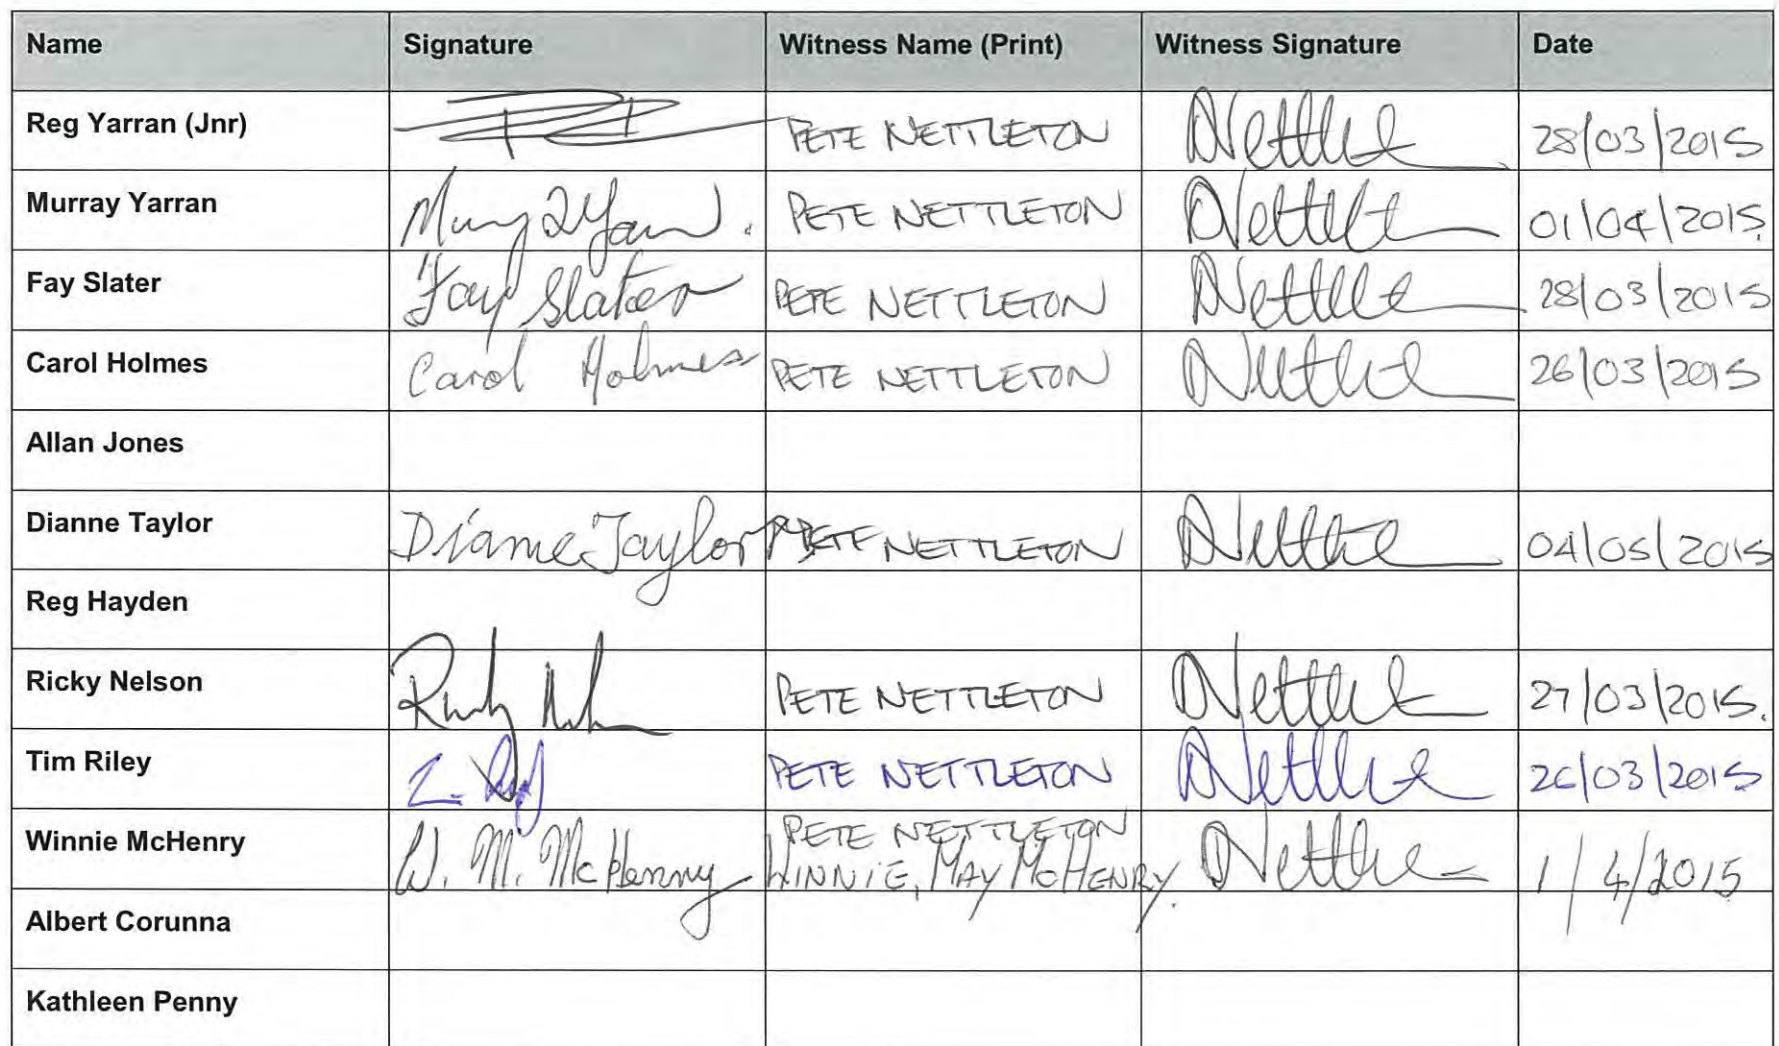 Name Signature Witness Name (Print) Witness Signature Date
Reg Yarran (Jnr) PETE NETTLETON Nettle 28/03/2015
Murray Yarran PETE NETTLETON Nettle 01/04/2015
Fay Slater Fay Slater PETE NETTLETON Nettle 28/03/2015
Carol Holmes Carol Holmes PETE NETTLETON Nettle 26/03/2015
Allan Jones
Dianne Taylor Dianne Taylor PETE NETTLETON Nettle 04/05/2015
Reg Hayden
Ricky Nelson PETE NETTLETON Nettle 27/03/2015.
Tim Riley PETE NETTLETON Nettle 26/03/2015
PETE NETTLETON
Winnie McHenry W. M. McHenry WINNIE, MAY McHENRY. Nettle 1/4/2015
Albert Corunna
Kathleen Penny